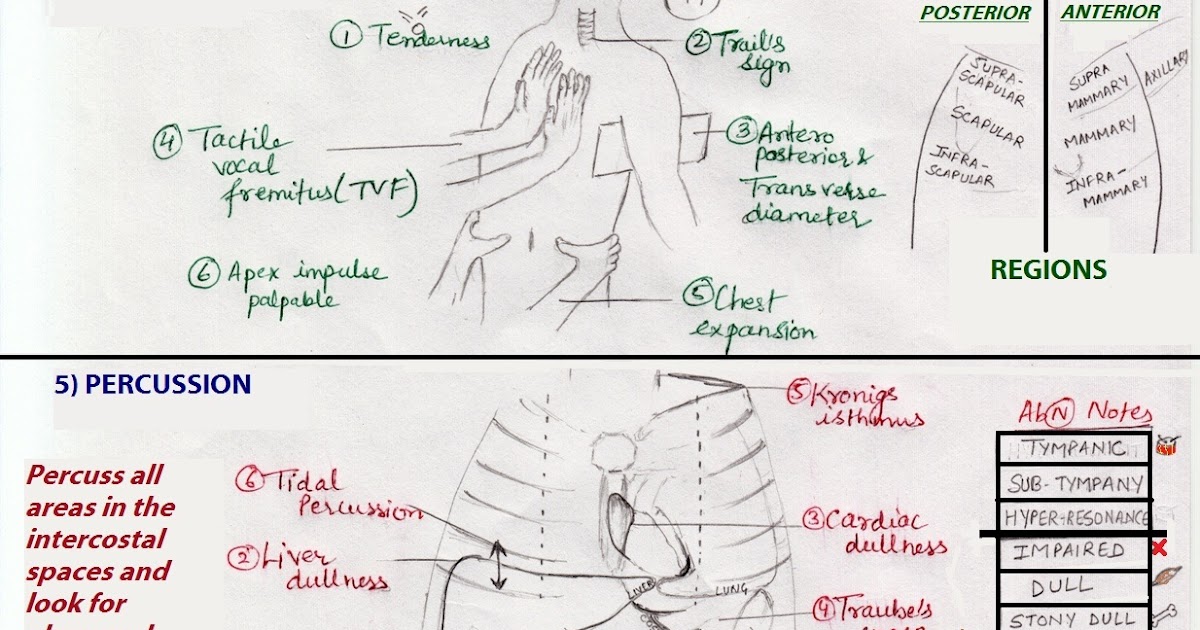 ① Tenderness
② Trail's
sign
③ Antero
posterior &
Transverse
diameter
④ Tactile
vocal
fremitus (TVF)
⑤ Chest
expansion
⑥ Apex impulse
palpable
POSTERIOR
ANTERIOR
SUPRA-
SCAPULAR
SCAPULAR
INFRA-
SCAPULAR
SUPRA
MAMMARY
AXILLARY
MAMMARY
INFRA-
MAMMARY
REGIONS
5) PERCUSSION
Percuss all
areas in the
intercostal
spaces and
look for
⑥ Tidal
Percussion
② Liver
dullness
⑤ Kronigs
isthmus
③ Cardiac
dullness
④ Traube's
LIVER
LUNG
AbⓃ Notes
TYMPANIC
SUB-TYMPANY
HYPER-RESONANCE
IMPAIRED
DULL
STONY DULL